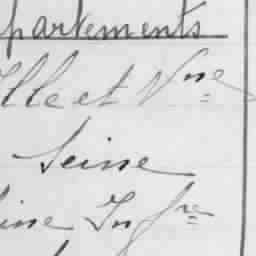 partements
Ille et Vne
Seine
eine Infre